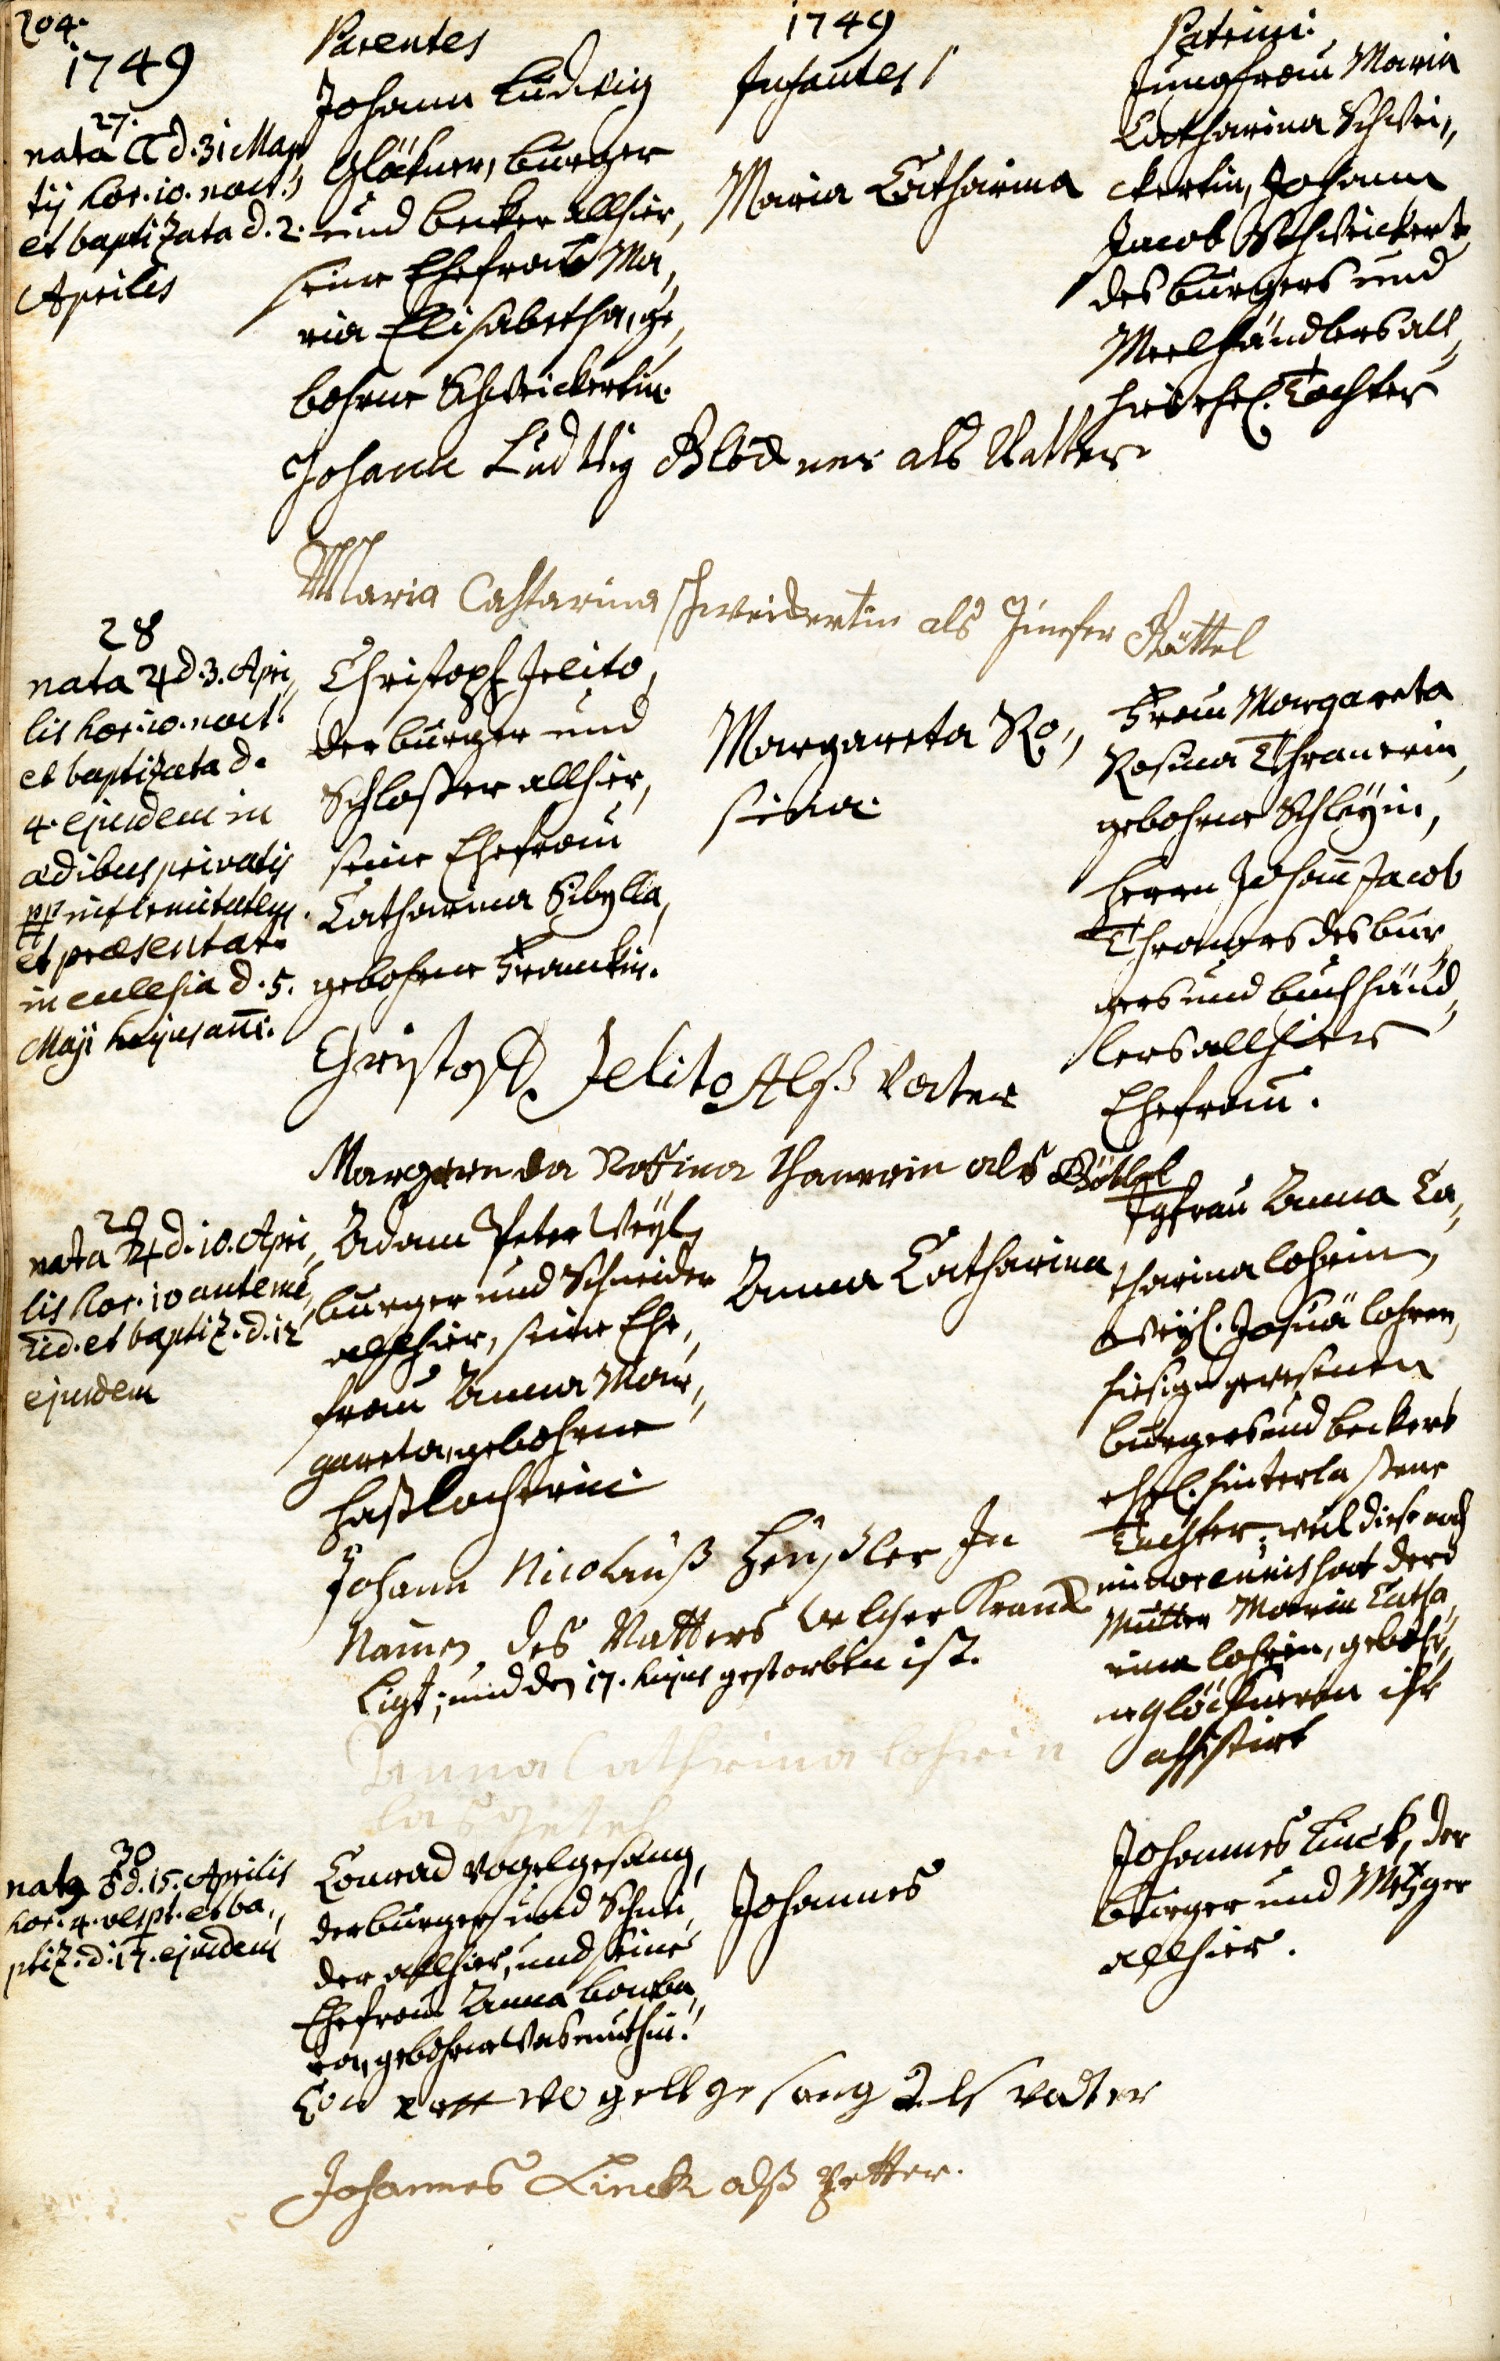 204.
1749
Parentes
1749
Infantes
Patrini.
27.
nata ☾ d. 31 Mar
tij hor. 10. noct.
et baptizata d. 2.
Aprilis
Johann Ludwig
Glöckner, burger
und becker allhier,
seine Ehefrau Ma,,
ria Elisabetha, ge,,
bohrne Schweickertin.
Maria Catharina
Jungfrau Maria
Catharina Schwei,,
ckertin, Johann
Jacob Schweickerts
des burgers und
Meelhändlers all,,
hier ehel. Tochter
Johann Ludwig Glöckner als Vatter
Maria Cahtarina schweickertin als Jumfer Göttel
28
nata ♃ d. 3. Apri,,
lis hor. 10. noct.
et baptizata d.
4. ejusdem in
ædibus privatis
pp infirmitatem
et præsentat.
in ecclesia d. 5.
Maji hujus anni.
Christoph Jelito,
der burger und
Schlosser allhier,
seine Ehefrau
Catharina Sibylla,
gebohrne Franckin.
Margareta Ro,,
sina.
Frau Margareta
Rosina Thranerin,
gebohrne Schleyin,
Herrn Johann Jacob
Thraners des bur,,
gers und buchhänd,,
lers allhier
Ehefrau.
Christoph Jelito Alß Vater
Margarenda Rossina Thanerin als Göttel
29
nata ♃ d. 10. Apri,,
lis hor. 10 anteme,,
rid. et baptiz. d. 12
ejusdem
Adam Peter Weyl,
burger und Schneider
allhier, seine Ehe,,
frau Anna Mar,,
gareta, gebohrne
Haßlocherin
Anna Catharina
Jgfrau Anna Ca,,
tharina Lohrin,
weyl. Josuä Lohren,
hiesigen gewesenen
burgers und beckers
ehel. hinterlassene
Tochter, weil diese noch
minorennis hat dero
Mutter Maria Catha,,
rina Lohrin, gebohr,,
ne Glöcknerin ihr
assistirt
Johann Nicolauß Heußler Im
Namen des Vatters welcher Kranck
Ligt; und den 17. hujus gestorben ist.
Anna Cathrina Lohrin
30
nat. ♂ d. 15. Aprilis
hor. 4. vespt. et ba,,
ptiz. d. 17. ejusdem
Conrad Vogelgesang,
der burger und Schnei,,
der allhier, und seine
Ehefrau Anna barba,,
ra, gebohrne Wasmuthin.
Johannes
Johannes Linck, der
burger und Metzger
allhier.
Con ratt vo gell ge sang Als vatter
Johannes Linck alß petter.